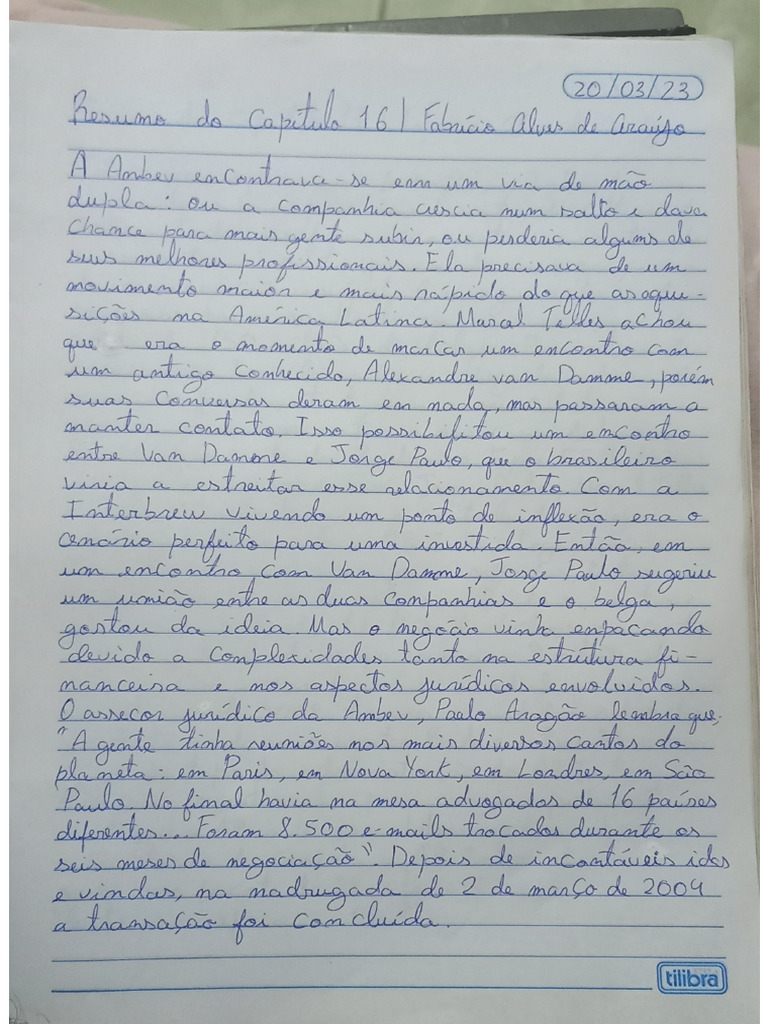 20/03/23
Resumo do Capítulo 16 | Fabrício Alves de Araújo
A Ambev encontrava-se em um via de mão
dupla: ou a companhia crescia num salto e dava
chance para mais gente subir, ou perderia alguns de
seus melhores profissionais. Ela precisava de um
movimento maior e mais rápido do que as aqui-
sições na América Latina. Marcel Telles achou
que era o momento de marcar um encontro com
um antigo conhecido, Alexandre van Damme, porém
suas conversas deram em nada, mas passaram a
manter contato. Isso possibilitou um encontro
entre Van Damme e Jorge Paulo, que o brasileiro
viria a estreitar esse relacionamento. Com a
Interbrew vivendo um ponto de inflexão, era o
cenário perfeito para uma investida. Então, em
um encontro com Van Damme, Jorge Paulo sugeriu
um união entre as duas companhias e o belga,
gostou da ideia. Mas o negócio vinha enpacando
devido a complexidades tanto na estrutura fi-
nanceira e nos aspectos jurídicos envolvidos.
O assecor jurídico da Ambev, Paulo Aragão lembra que,
"A gente tinha reuniões nos mais diversos cantos do
planeta: em Paris, em Nova York, em Londres, em São
Paulo. No final havia na mesa advogados de 16 países
diferentes... Foram 8.500 e-mails trocados durante os
seis meses de negociação". Depois de incontáveis idas
e vindas, na madrugada de 2 de março de 2004
a transação foi concluída.
tilibra